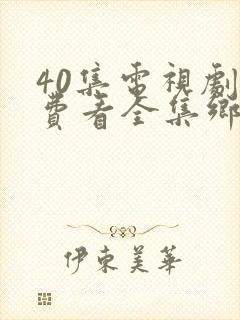 40集電視劇
費看全集鄉
伊東美華